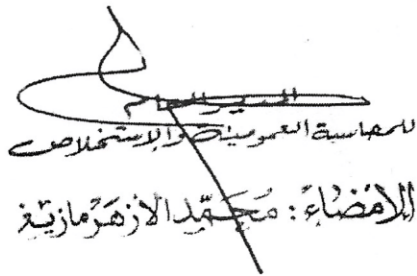 المدير العام
للمحاسبة العمومية والإستخلاص
الامضاء: محمد الازهر مازيغ